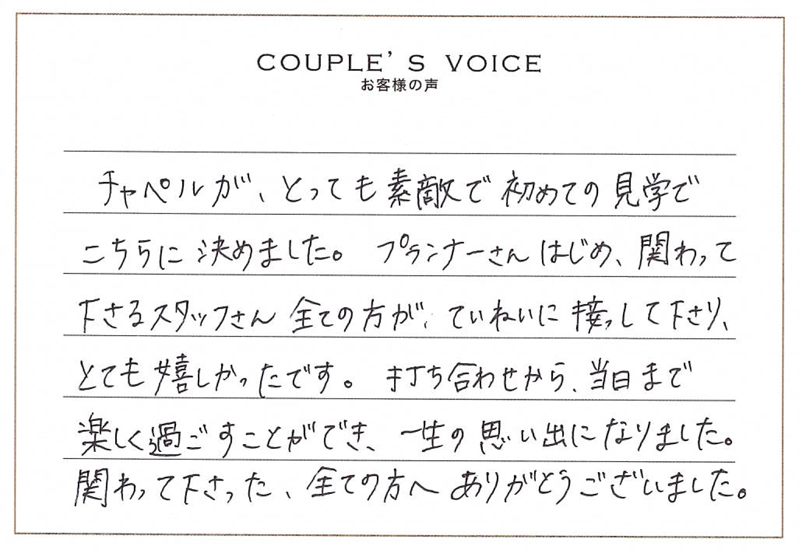 COUPLE'S VOICE
お客様の声
チャペルが、とっても素敵で初めての見学で
こちらに決めました。プランナーさんはじめ、関わって
下さるスタッフさん全ての方が、ていねいに接っして下さり、
とても嬉しかったです。打ち合わせから、当日まで
楽しく過ごすことができ、一生の思い出になりました。
関わって下さった、全ての方へありがとうございました。